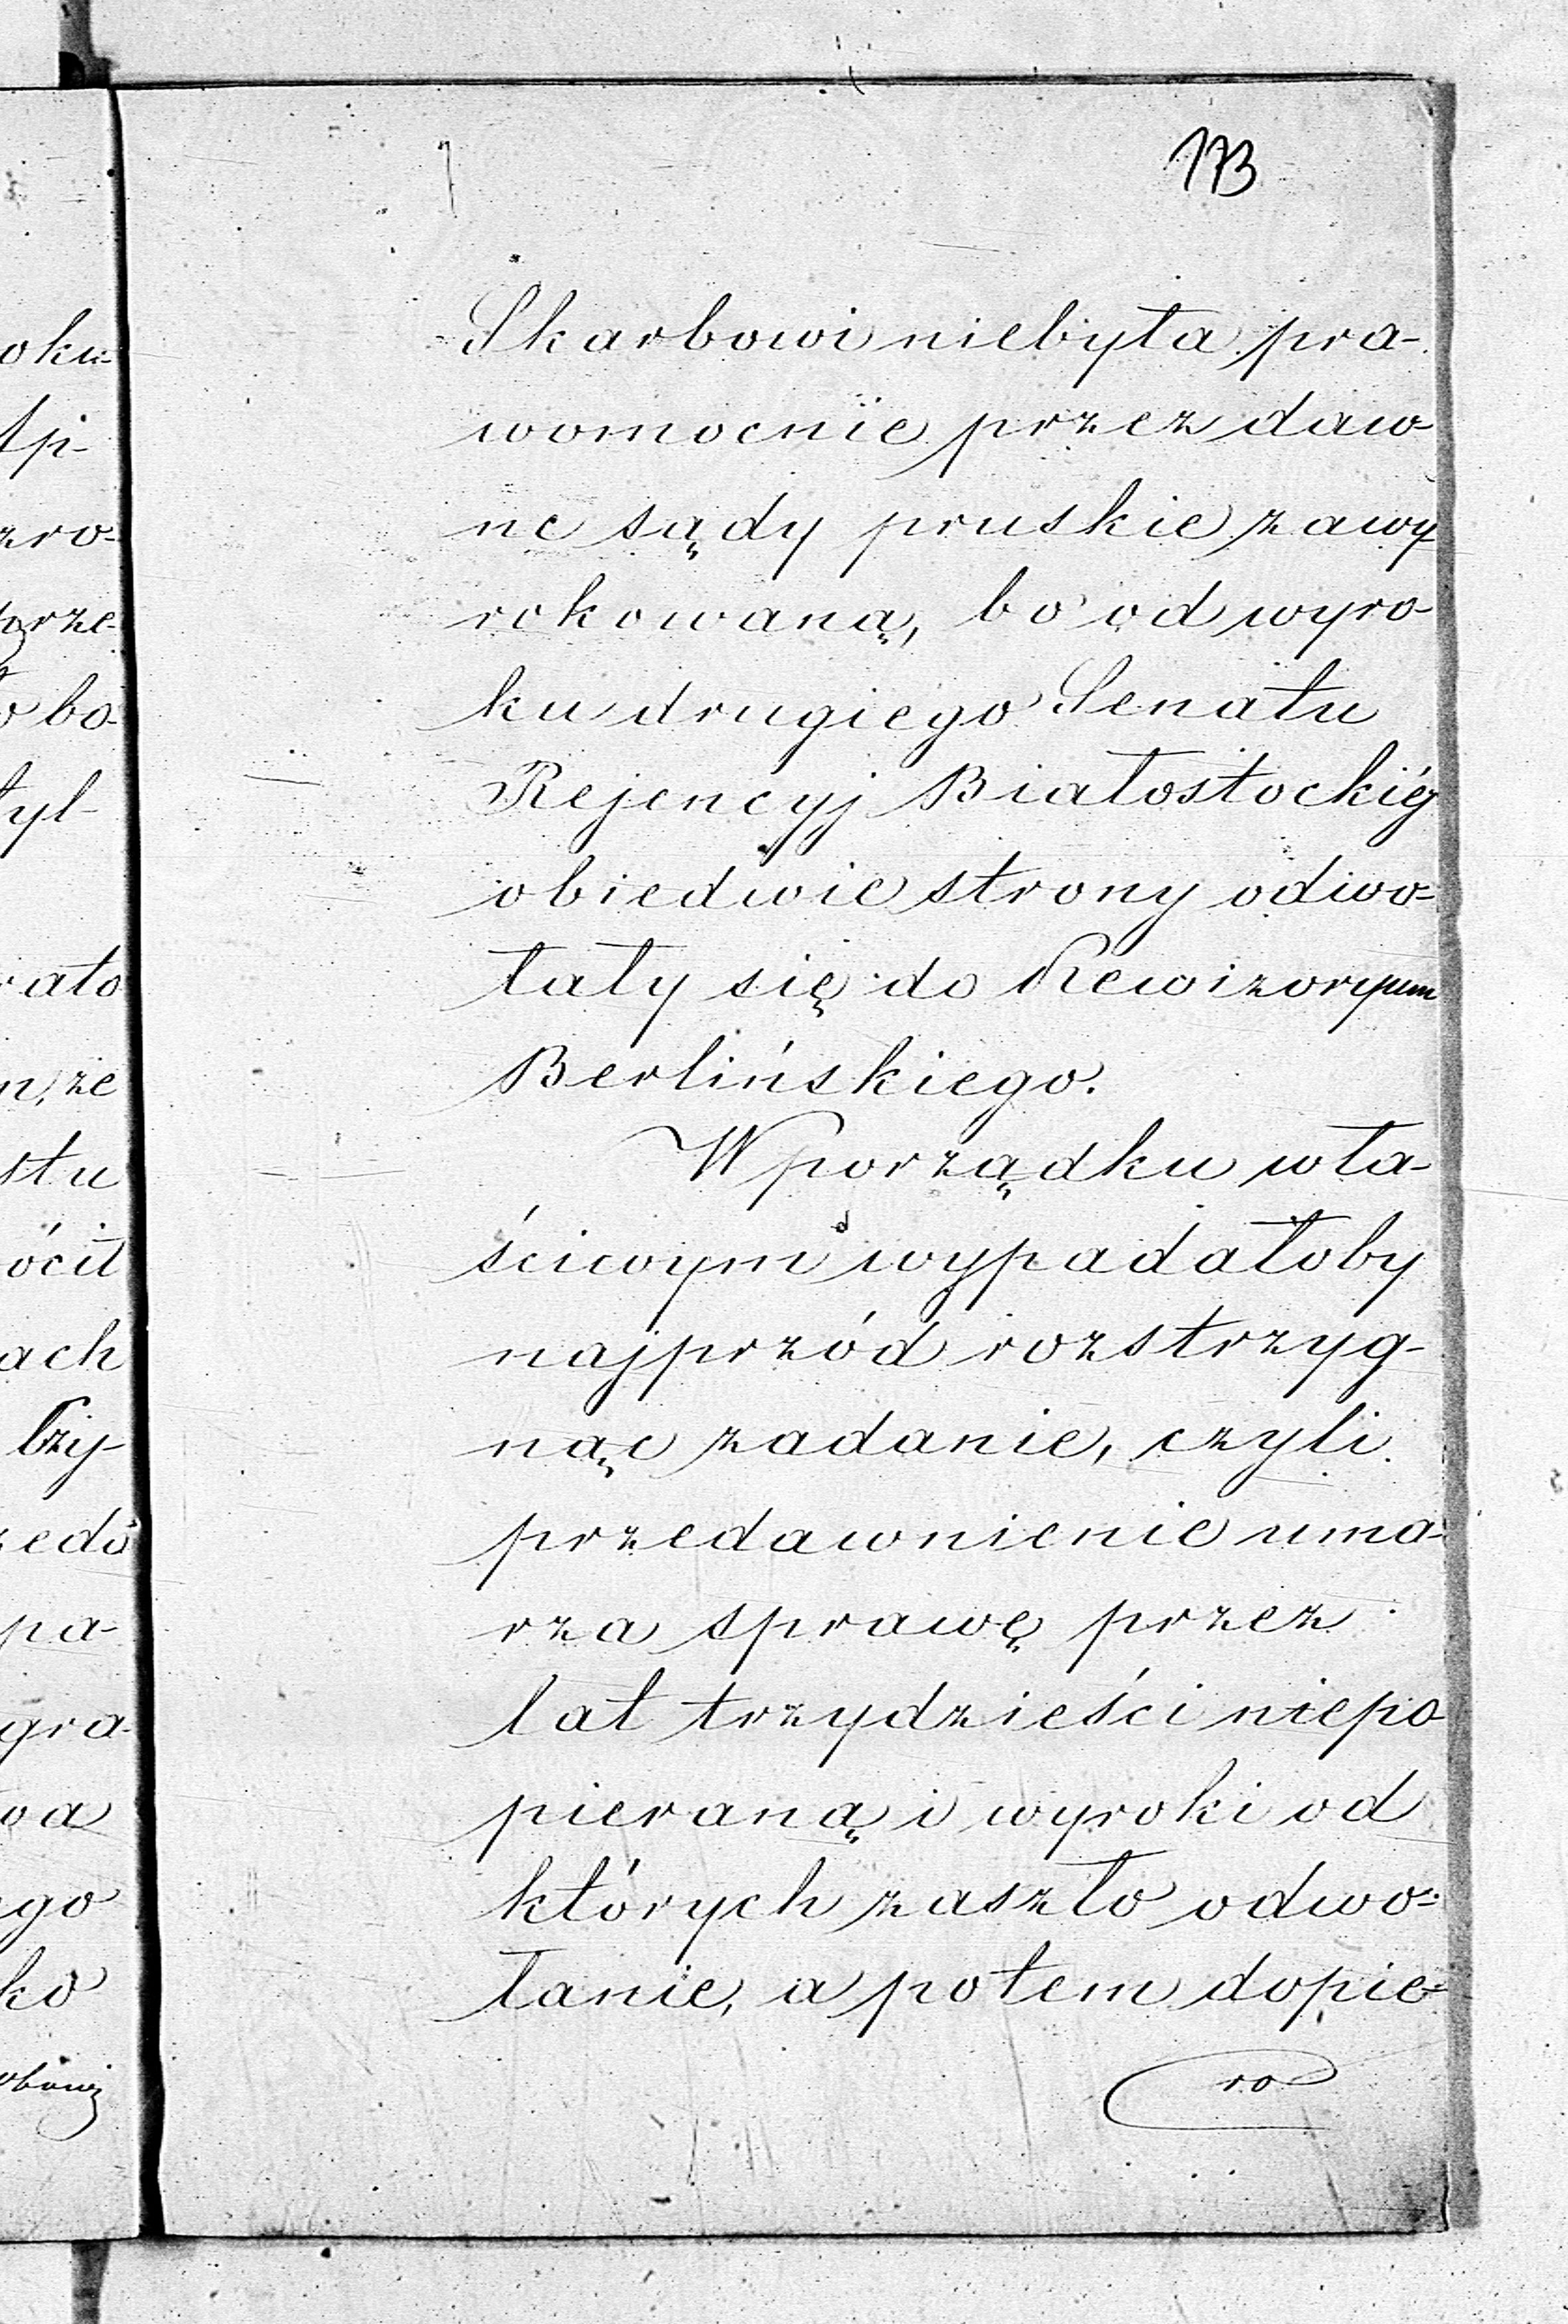 173
Skarbowi niebyła pra-
womocnie przez daw-
ne sądy pruskie zawy
rokowaną, bo od wyro-
ku drugiego Senatu
Rejencyj Białostockiéj
obiedwie strony odwo-
łały się do Rewizoryum
Berlińskiego.
W porządku wła-
ściwym wypadałoby
najprzód rozstrzyg-
nąc zadanie, czyli
przedawnienie uma-
rza sprawę przez
lat trzydzieści niepo
pieraną i wyroki od
których zaszło odwo-
łanie, a potem dopie-
ro